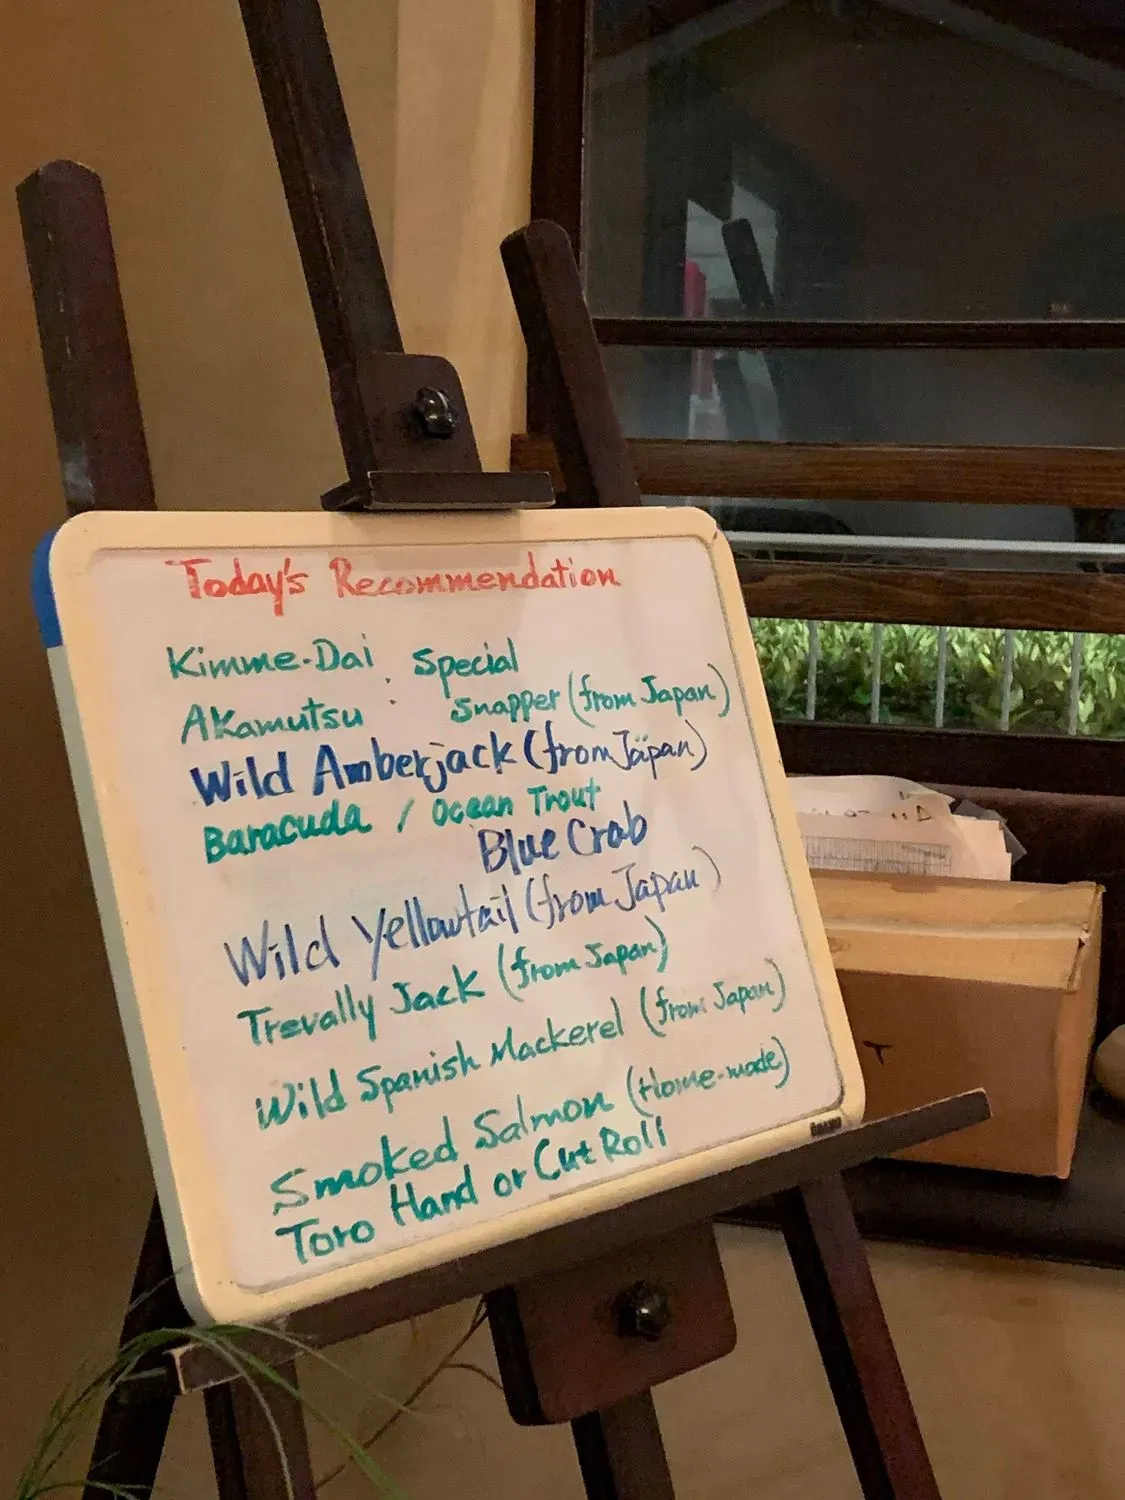 Today's Recommendation
Kimme-Dai : Special
Akamutsu Snapper (from Japan)
Wild Amberjack (from Japan)
Baracuda / Ocean Trout
Blue Crab
Wild Yellowtail (from Japan)
Trevally Jack (from Japan)
Wild Spanish Mackerel (from Japan)
Smoked Salmon (Home-made)
Toro Hand or Cut Roll
T